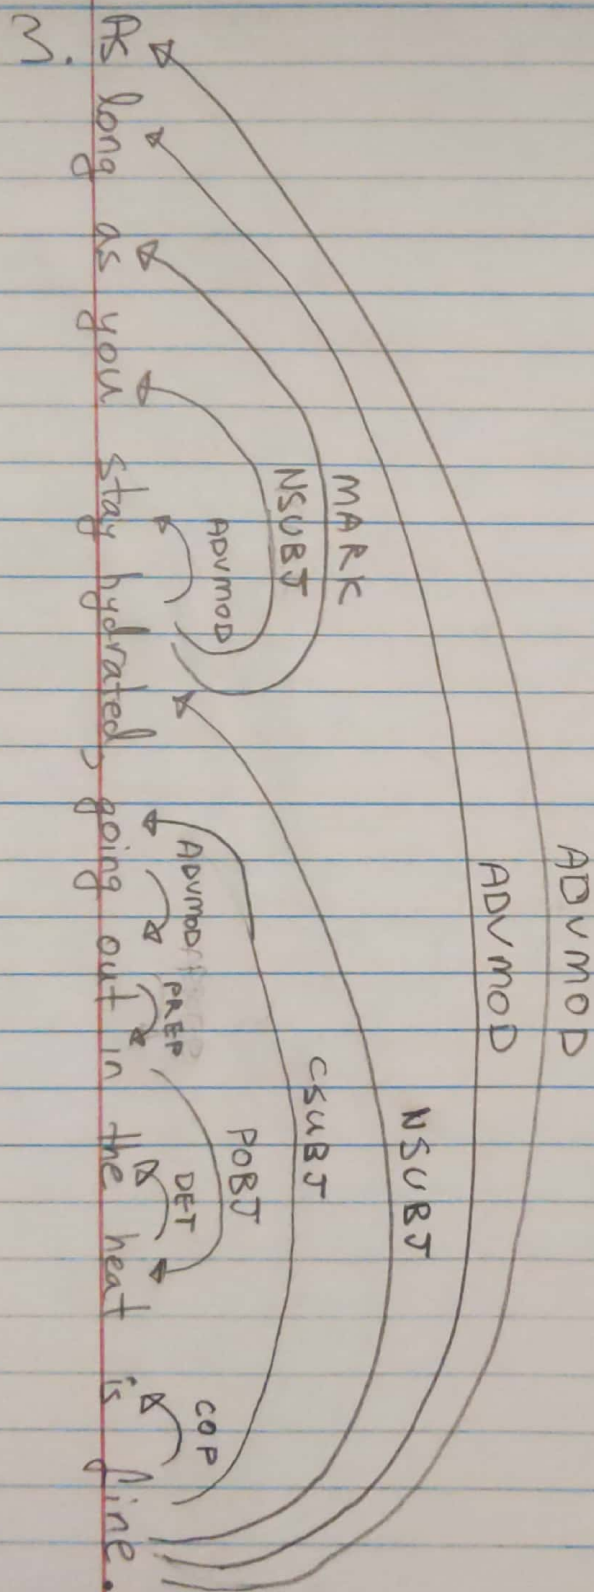 3. As long as you stay hydrated, going out in the heat is fine.
ADVMOD
ADVMOD
NSUBJ
MARK
CSUBJ
NSUBJ
POBJ
ADVMOD
ADVMOD
PREP
DET
COP